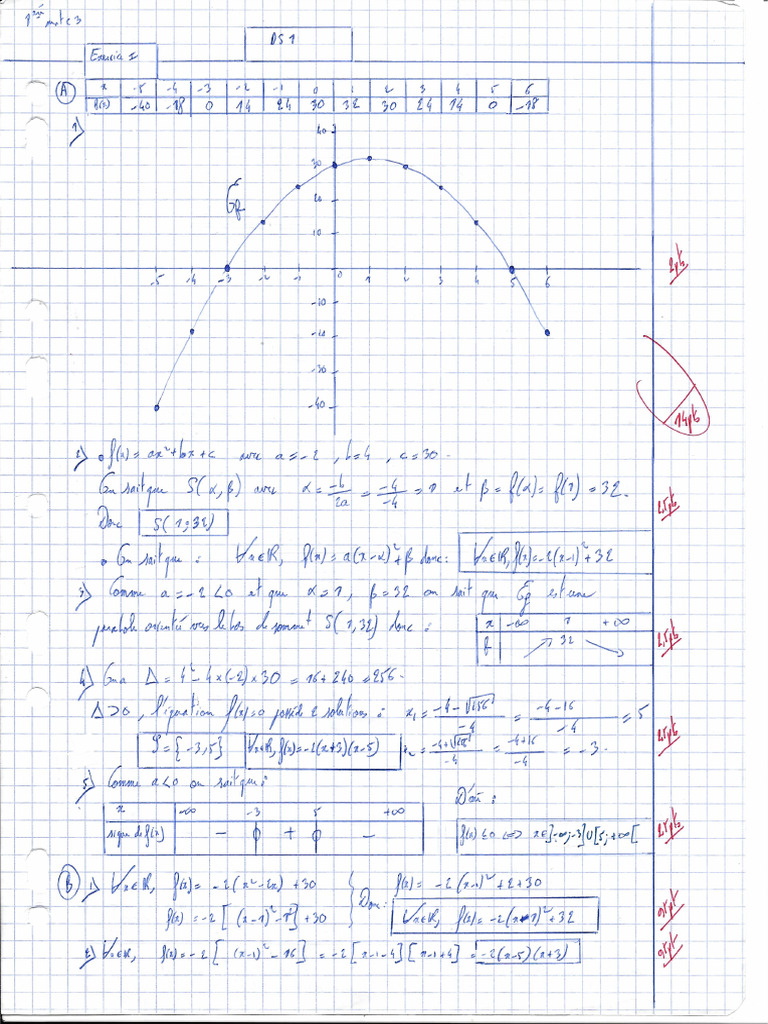 DS 1
Exercice I
A
x -5 -4 -3 -2 -1 0 1 2 3 4 5 6
f(x) -40 -18 0 14 24 30 32 30 24 14 0 -18
1)
40
30
20
10
-5 -4 -3 -2 -1 0 1 2 3 4 5 6
-10
-20
-30
-40
𝒞f
2pts
14pts
2) • f(x) = ax²+bx+c avec a=-2 , b=4 , c=30.
On sait que S(α,β) avec α = -b/2a = -4/-4 = 1 et β = f(α) = f(1) = 32.
2,5pts
Donc S(1;32)
• On sait que : ∀x∈ℝ, f(x) = a(x-α)²+β donc : ∀x∈ℝ, f(x)=-2(x-1)²+32
3) Comme a=-2<0 et que α=1, β=32 on sait que 𝒞f est une
parabole orientée vers le bas de sommet S(1,32) donc :
x -∞ 1 +∞
f ↗ 32 ↘
2,5pts
4) On a Δ = 4²-4×(-2)×30 = 16+240 = 256.
Δ>0 , l'équation f(x)=0 possède 2 solutions : x₁ = (-4-√256)/-4 = (-4-16)/-4 = 5
2,5pts
𝒮 = {-3,5} ∀x∈ℝ, f(x)=-2(x+3)(x-5) x₂ = (-4+√256)/-4 = (-4+16)/-4 = -3.
5) Comme a<0 on sait que :
D'où :
x -∞ -3 5 +∞
signe de f(x) - 0 + 0 -
f(x)≤0 ⟺ x∈]-∞;-3]∪[5;+∞[
2,5pts
B 1) ∀x∈ℝ, f(x) = -2(x²-2x)+30
f(x) = -2[(x-1)²-1²]+30
Donc : f(x) = -2(x-1)²+2+30
∀x∈ℝ, f(x) = -2(x-1)²+32
0,5pt
2) ∀x∈ℝ, f(x) = -2[(x-1)²-16] = -2[x-1-4][x-1+4] = -2(x-5)(x+3)
0,5pt